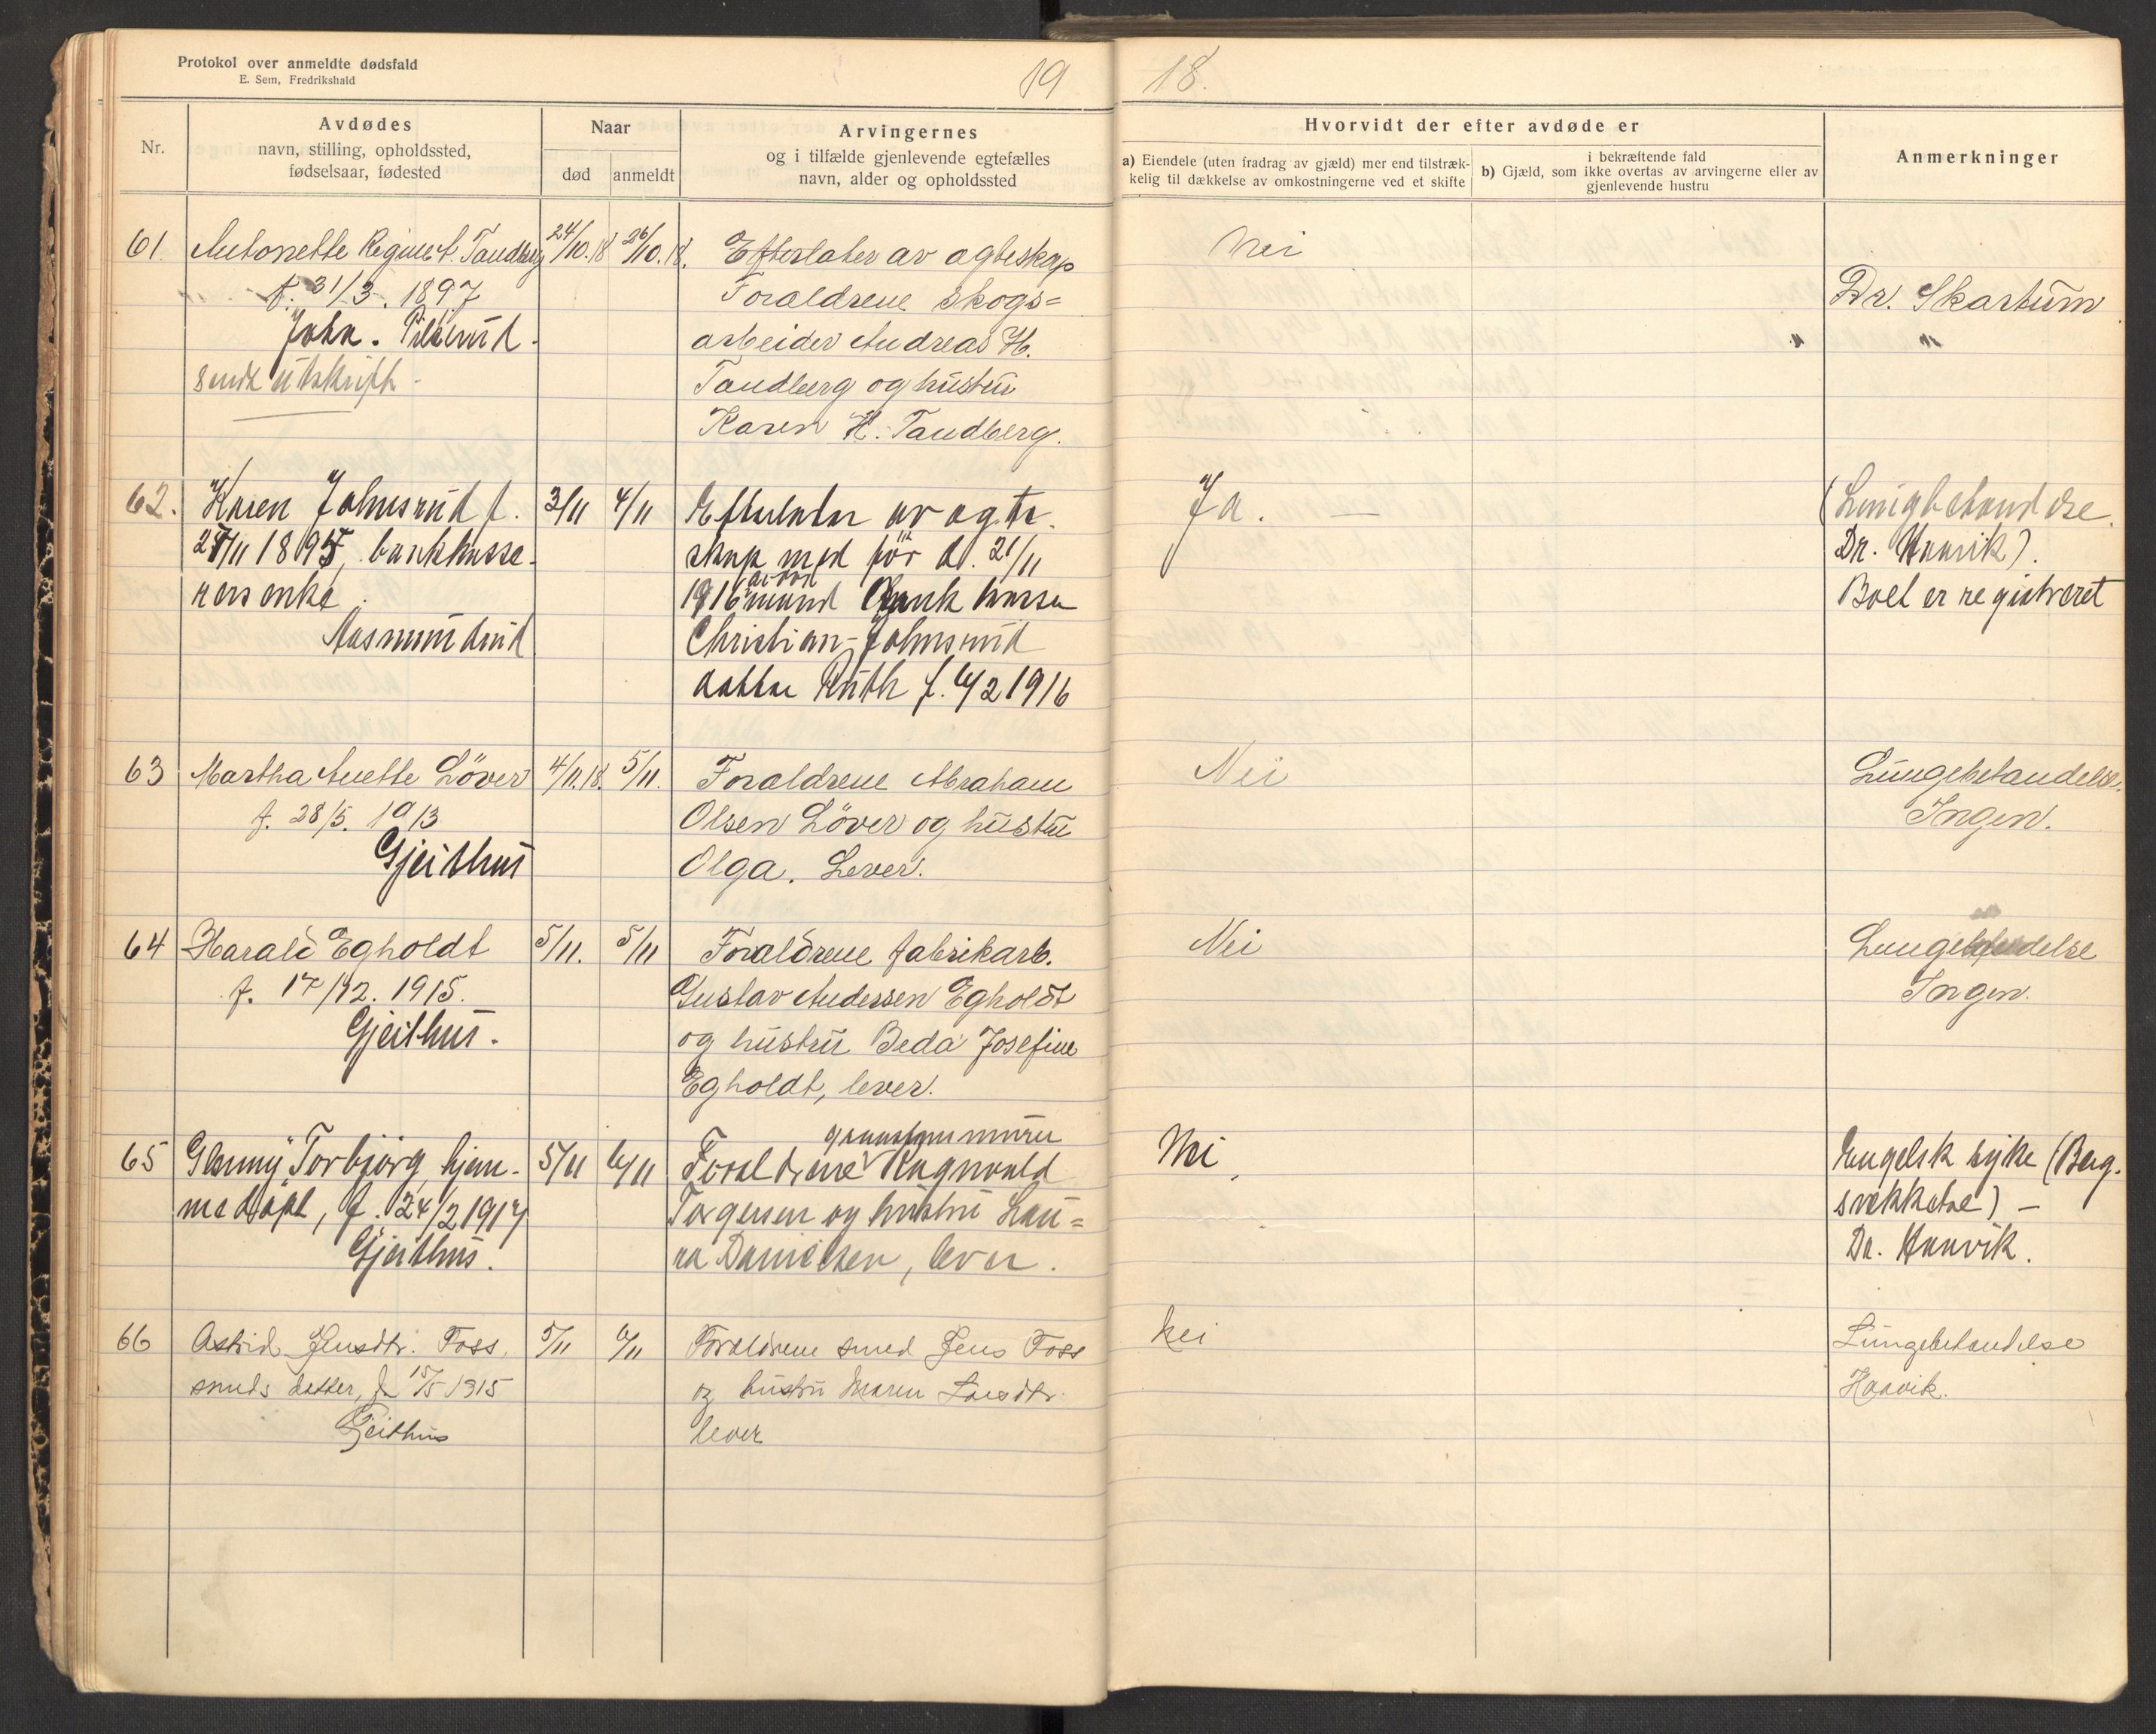 Protokol over anmeldte dødsfald
E. Sem, Fredrikshald
19 18.
Nr.
Avdødes
navn, stilling, opholdssted,
fødselsaar, fødested
Naar
død anmeldt
Arvingernes
og i tilfælde gjenlevende egtefælles
navn, alder og opholdssted
Hvorvidt der efter avdøde er
a) Eiendele (uten fradrag av gjæld) mer end tilstræk-
kelig til dækkelse av omkostningerne ved et skifte
i bekræftende fald
b) Gjæld, som ikke overtas av arvingerne eller av
gjenlevende hustru
Anmerkninger
61. Antonette Tandberg
f. 31/3. 1897
John.
sendt utskrift.
24/10.18 26/10.18.
Efterlater av egteskap
Foraldrene skogs=
arbeider Andreas H.
Tandberg og hustru
Karen H. Tandberg.
Nei
Dr. Skartum
" "
62. Karen Johnsrud f.
11 1895, bankkasse-
rers enke
Aasmundrud
3/11 4/11
Efterlater av egte-
skap med før d. 21/11
1916 avdød mand Bankkasser
Christian Johnsrud
datter Ruth f. 6/2 1916
Ja. —
(Lungebetændelse.
Dr. Haavik).
Boet er registreret
63 Martha Anette Löver
f. 28/5. 1913
Gjeithus
4/11.18. 5/11.
Foraldrene Abraham
Olsen Löver og hustru
Olga. Lever.
Nei
Lungebetændelse.
Ingen.
64 Harald Egholdt
f. 17/12. 1915.
Gjeithus.
5/11. 5/11
Foraldrene fabrikarb.
Gustav Andersen Egholdt
og hustru Beda Josefine
Egholdt, lever.
Nei
Lungebetændelse
Ingen.
65 Torbjørg, hjem-
medøpt, f. 24/2 1917
Gjeithus.
5/11 6/11
Foraldrene Ragnvald
Torgersen og hustru Lau=
ra Danielsen, lever.
Nei
Engelsk syke (Beng.
svækkelse) —
Dr. Haavik.
66 Astrid Jensdtr. Foss,
smeds datter, f. 15/5 1915
Gjeithus
5/11 6/11
Foraldrene smed Jens Foss
og hustru Maren Larsdtr.
lever
Nei
Lungebetændelse
Haavik.